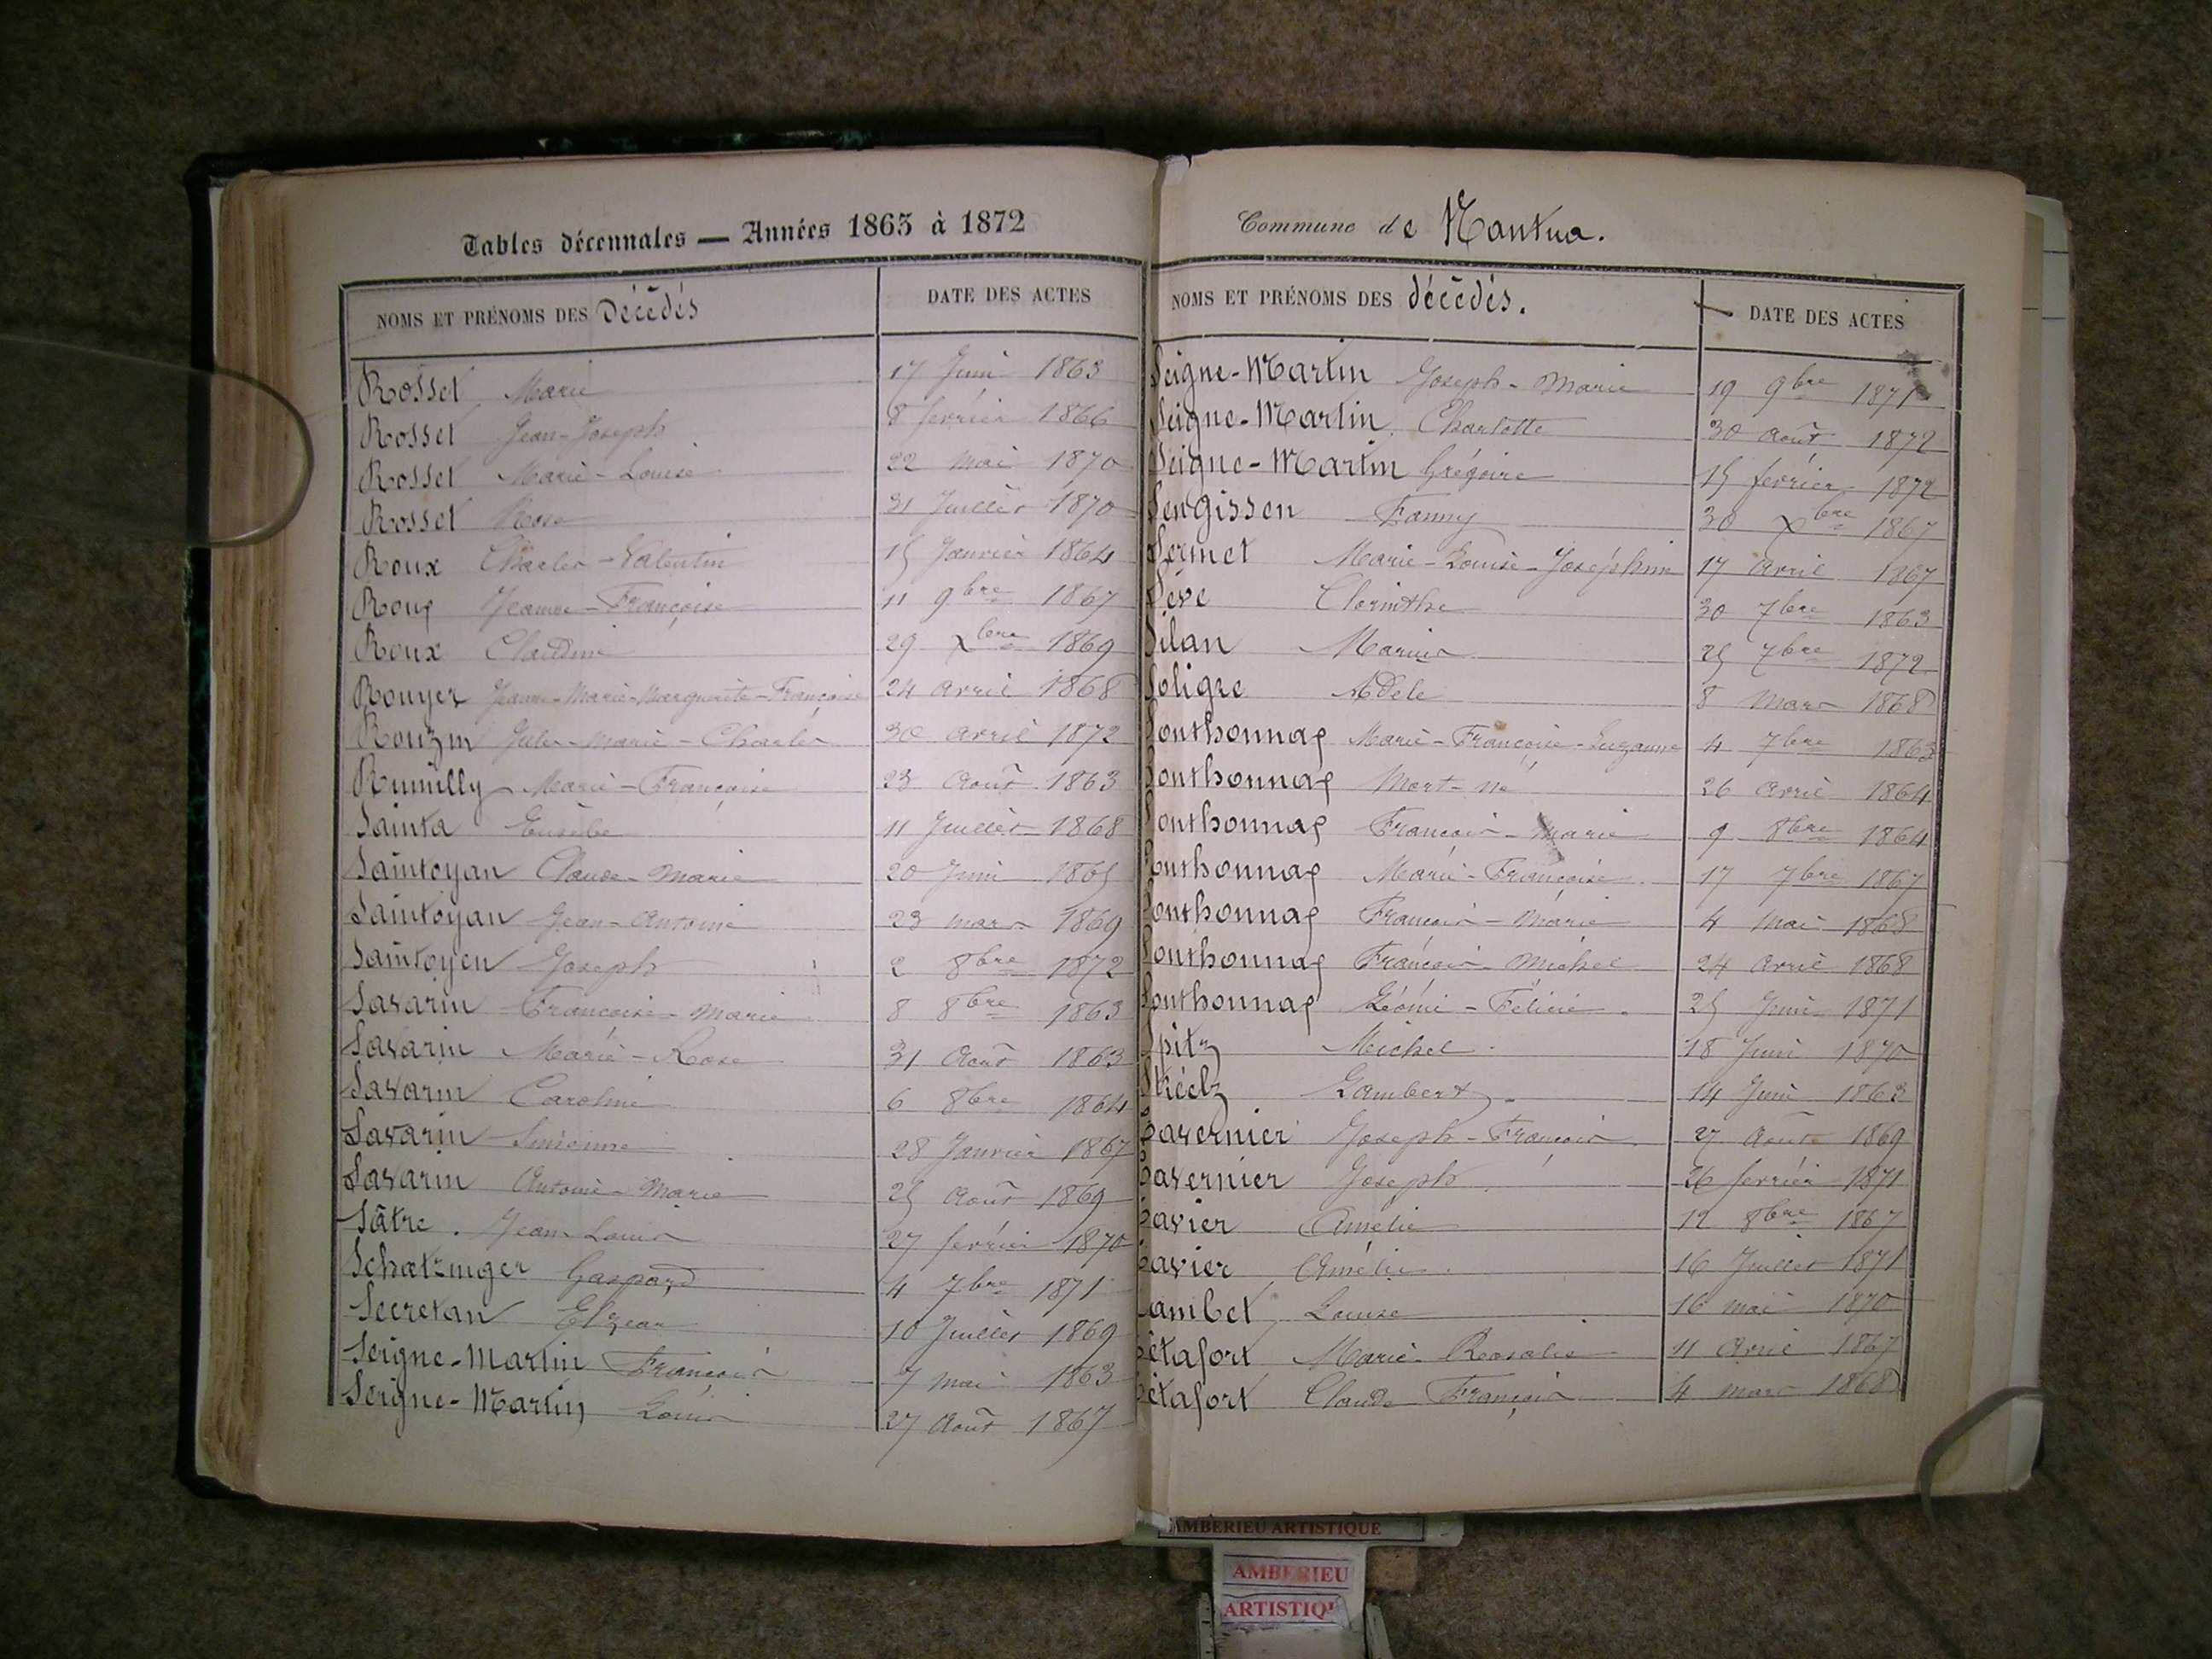 Tables décennales — Années 1863 à 1872
NOMS ET PRÉNOMS DES Décédés DATE DES ACTES
Rosset Marie 17 Juin 1863
Rosset Jean-Joseph 8 février 1866
Rosset Marie-Louise 22 mai 1870
Rosset Rose 31 Juillet 1870
Roux Charles-Valentin 15 Janvier 1864
Roux Jeanne-Françoise 11 9bre 1867
Roux Claudine 29 Xbre 1869
Rouyer Jeanne-Marie-Marguerite-Françoise 24 avril 1868
Rouzin Jules-Marie-Charles 30 avril 1872
Rumilly Marie-Françoise 23 Août 1863
Sainta Eusèbe 11 Juillet 1868
Saintoyan Claude-Marie 20 Juin 1865
Saintoyan Jean-Antoine 23 mars 1869
Saintoyen Joseph 2 8bre 1872
Savarin Françoise-Marie 8 8bre 1863
Savarin Marie-Rose 31 Août 1863
Savarin Caroline 6 8bre 1864
Savarin 28 Janvier 1867
Savarin Antoine-Marie 25 Août 1869
Sâtre. Jean Louis 27 février 1870
Schatzinger Gaspard 4 7bre 1871
Secretan Elzear 10 Juillet 1869
Seigne-Martin François 7 mai 1863
Seigne-Martin Louis 27 Août 1867
Commune de Nantua.
NOMS ET PRÉNOMS DES décédés. DATE DES ACTES
Seigne-Martin Joseph-Marie 19 9bre 1871
Seigne-Martin Charlotte 30 Août 1872
Seigne-Martin Grégoire 15 février 1872
Sengissen Fanny 30 Xbre 1867
Sermet Marie-Louise-Joséphine 17 Avril 1867
Sève Clorinthe 30 7bre 1863
Silan Marius 25 7bre 1872
Soligre Adèle 8 Mars 1868
Sonthonnax Marie-Françoise-Suzanne 4 7bre 1863
Sonthonnax Mort-né 26 Avril 1864
Sonthonnax François-Marie 9 8bre 1864
Sonthonnax Marie-Françoise 17 7bre 1867
Sonthonnax François-Marie 4 Mai 1868
Sonthonnax François-Michel 24 Avril 1868
Sonthonnax Léonie-Félicie 25 Juin 1871
Spitz Michel 18 Juin 1870
Lambert 14 Juin 1863
Tavernier Joseph-François 27 Août 1869
Tavernier Joseph 26 février 1871
Tavier Amélie 12 8bre 1867
Tavier Amélie 16 Juillet 1871
Tambet Louise 16 mai 1870
Tétafort Marie-Rosalie 11 Avril 1867
Tétafort Claude François 4 mars 1868
AMBERIEU ARTISTIQUE
AMBERIEU
ARTISTIQU